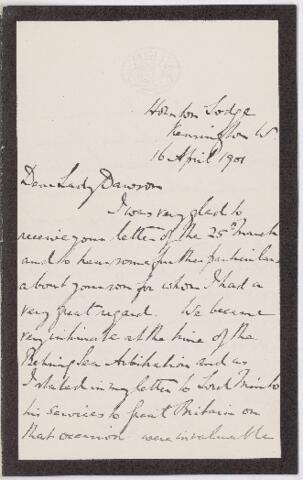 Hornton Lodge
Kensington W
16 April 1901
Dear Lady Dawson
I was very glad to
receive your letter of the 25th March
and to hear some further particulars
about your son for whom I had a
very great regard. We became
very intimate at the time of the
Behring Sea Arbitration and as
I stated in my letter to Lord Minto
his services to Great Britain on
that occasion were invaluable